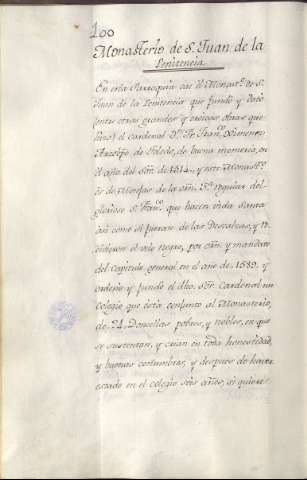 100
Monasterio de S. Juan de la
Penitencia
En esta Parroquia cae el Monast.º de S.
Juan de la Penitencia que fundó y dotó
(entre otras grandes y heroicas obras que
hizo) el Cardenal D.ⁿ Fr. Fran.co Ximenez
Arzobpo. de Toledo, de buena memoria, en
el año del Sr. de 1514 y este Monast.º
es de Monjas de la orn. 3.ª regular del
glorioso S. Fran.co que hacen vida santa
asi como si fueran de las Descalzas, y
el velo negro, por orn. y mandato
del capitulo general en el año de 1589. y
ordenó y fundó el dho. Sor. Cardenal un
Colegio que está conjunto al Monasterio,
de 24 Doncellas pobres, y nobles, en que
se sustentan, y crian en toda honestidad,
y buenas costumbres, y despues de haver
estado en el colegio seis años, si quieren